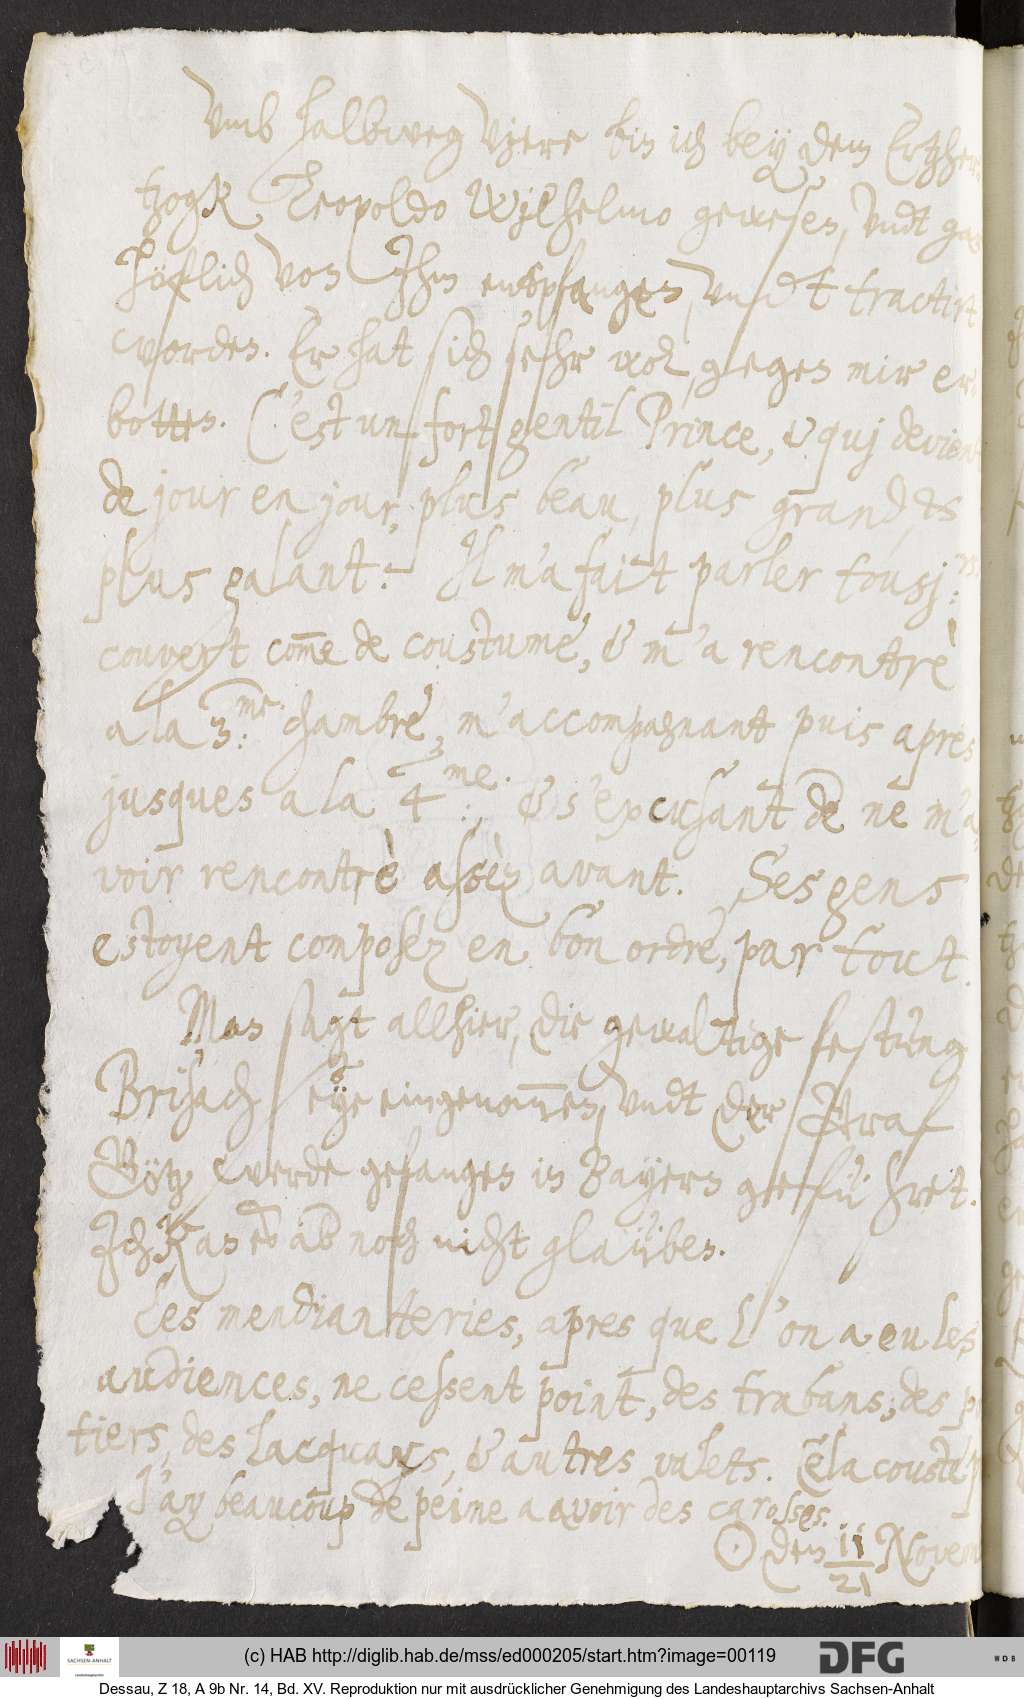 Vmb halbweg Vjere bin ich bey dem Ertzher
tzogk Leopoldo Wjlhelmo gewesen, Vndt gar
höflich von Jhm entpfangen, vndt tractirt
worden. Er hat sich sehr wol, gegen mir er,
botten. C'est un fort gentil Prince, & quj devient
de jour en jour, plus beau, plus grand, &
plus galant. Il m'a fait parler tousj:rs
couvert com̅e de coustume, & m'a rencontrè
a la 3:me. chambre, m'accompagnant puis apres
jusques a la 4:me. & s'excusant de ne m'a,
voir rencontrè assèz avant. Ses gens
estoyent composèz en bon ordre, par tout.
Man sagt allhier, die gewaltige festung
Brisach seye eingenom̅en, vndt der Graf
Götz werde gefangen in Bayern geführet.
Jch kan es ab noch nicht glaüben.
Les mendianteries, apres que l'on a eu les
audiences, ne cessent point, des trabans, des p
tiers, des lacquays, & autres valets. C'e la coustu
J'ay beaucoup de peine a avoir des carosses.
☉ den 11/21 Novem
(c) HAB http://diglib.hab.de/mss/ed000205/start.htm?image=00119
SACHSEN-ANHALT
DFG
WDB
Dessau, Z 18, A 9b Nr. 14, Bd. XV. Reproduktion nur mit ausdrücklicher Genehmigung des Landeshauptarchivs Sachsen-Anhalt